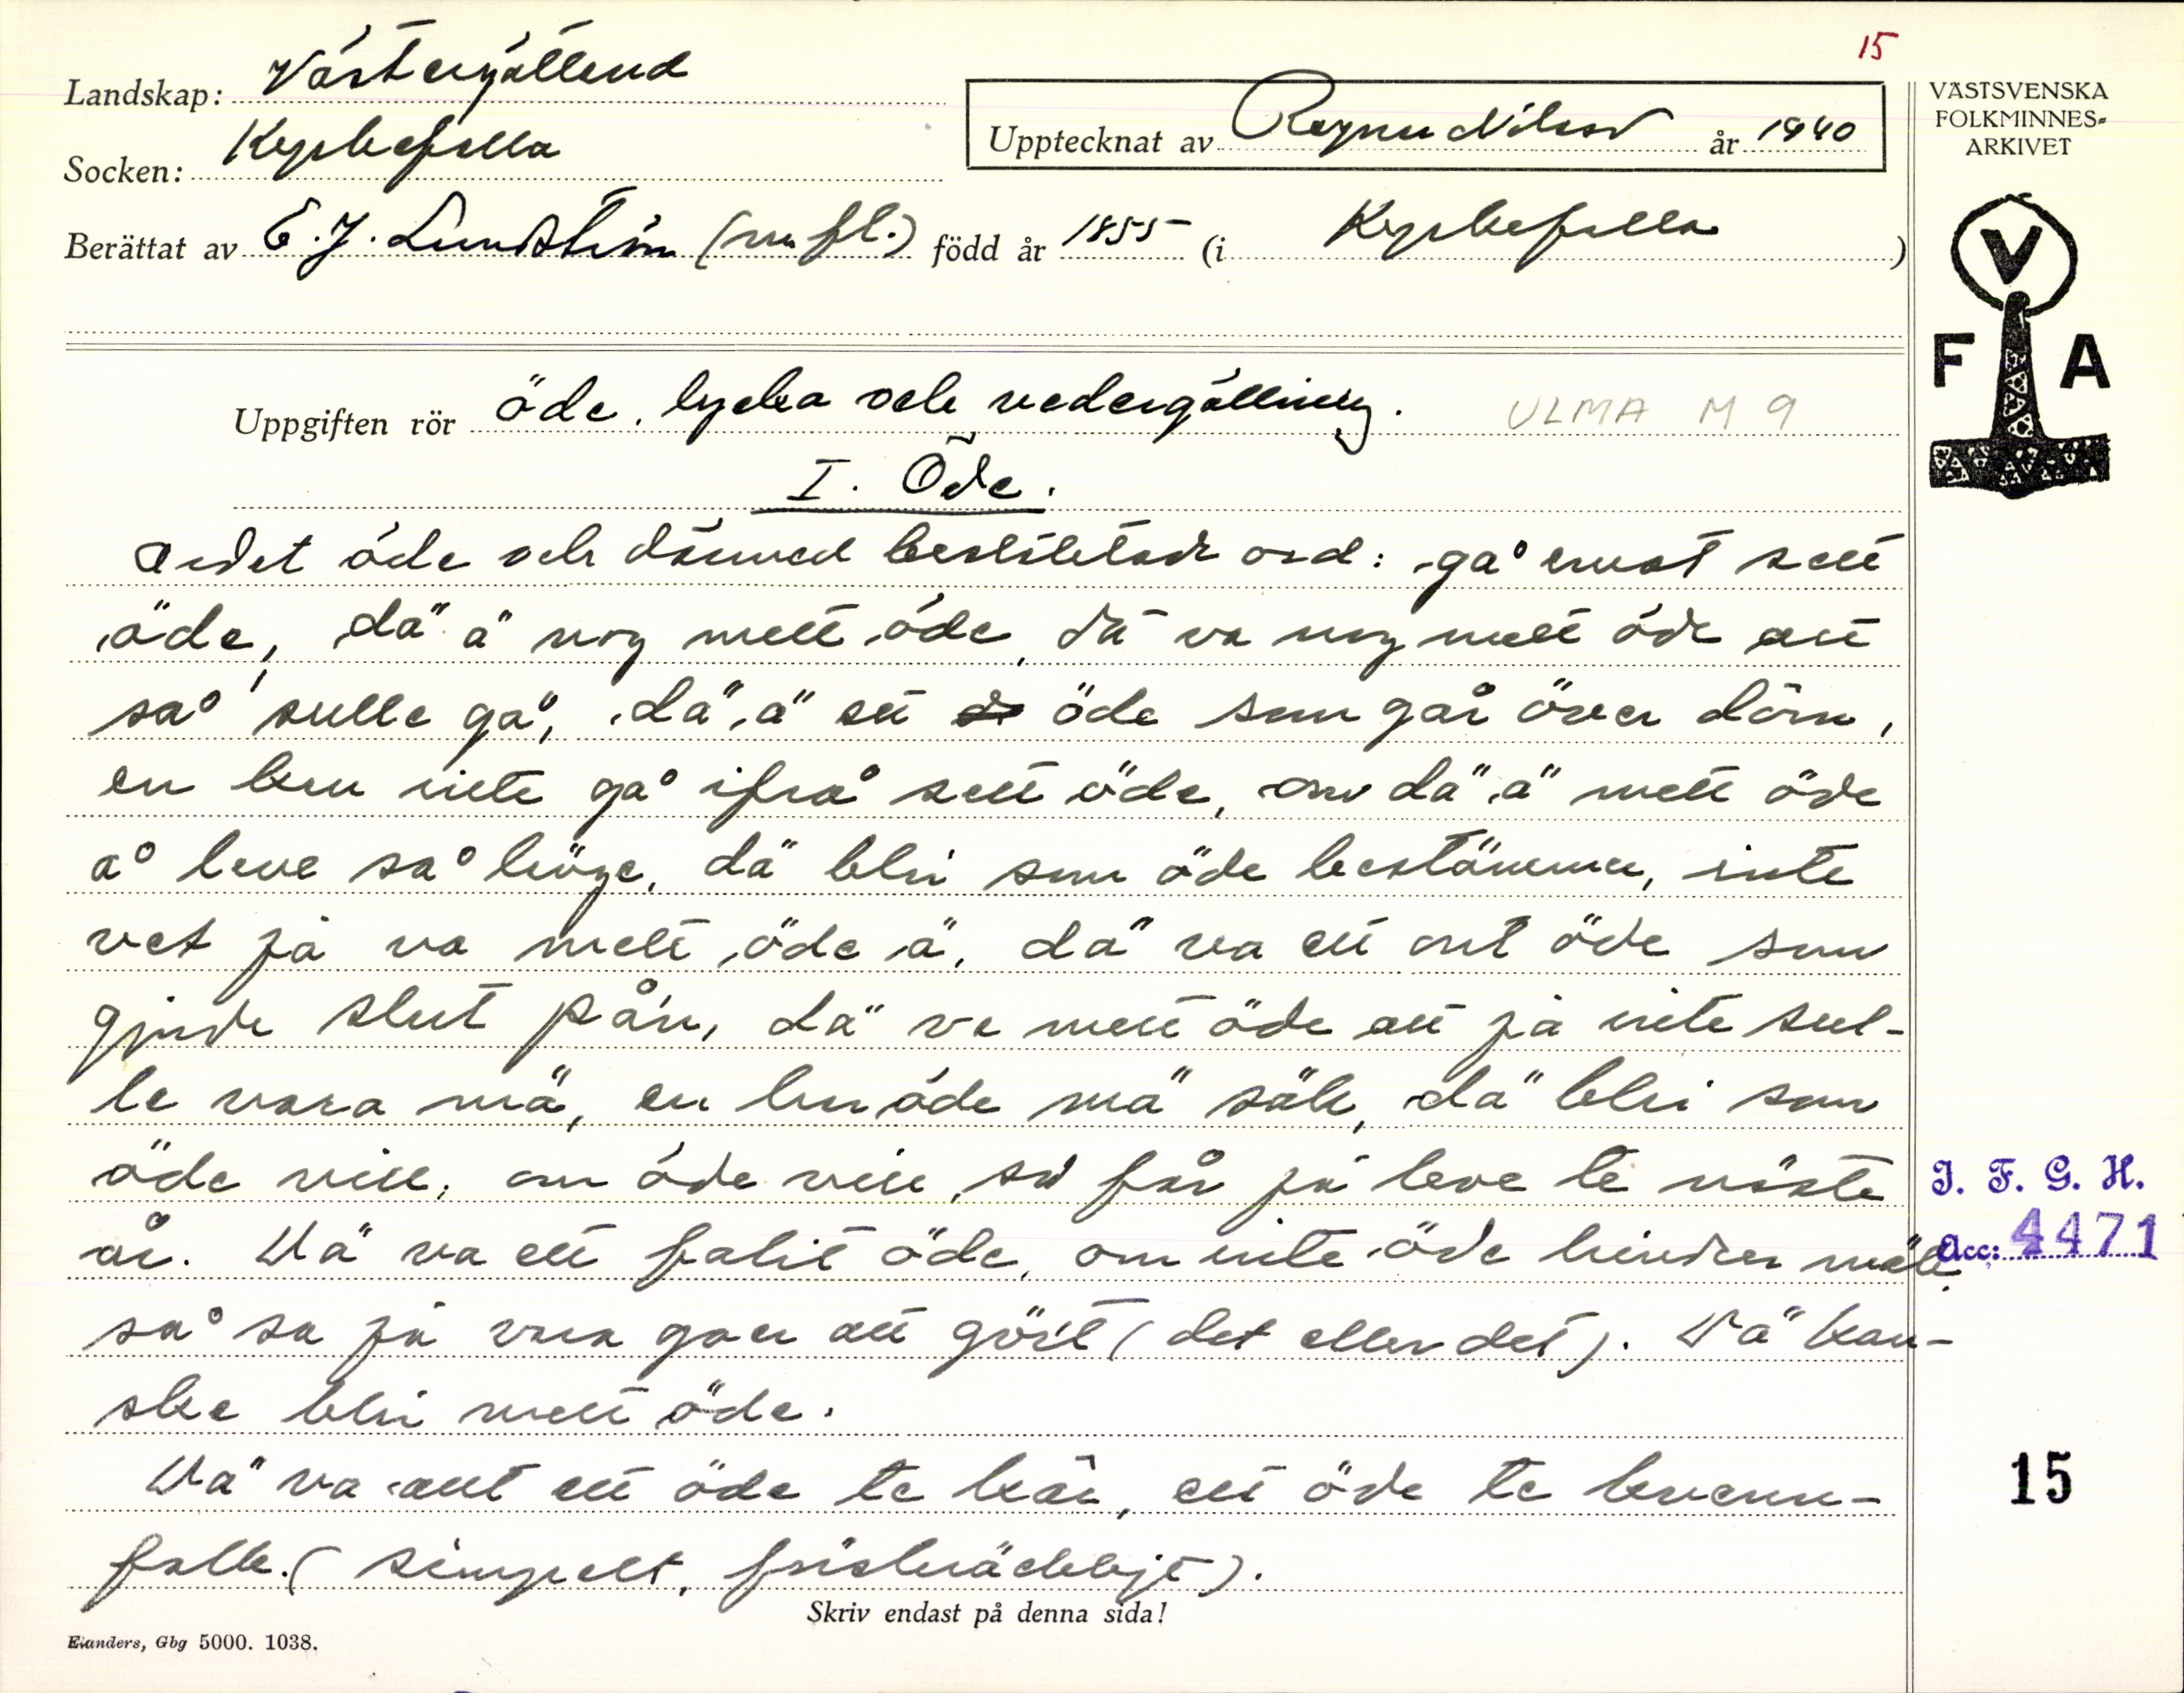 15
Landskap: Västergötland
Socken: Kyrkefalla
Upptecknat av Ragnar Nilsson år 1940
Berättat av E.J. Lundström (m fl.) född år 1855 (i Kyrkefalla)
VÄSTSVENSKA
FOLKMINNES-
ARKIVET
V
F A
Uppgiften rör öde, lycka och vedergällning. ULMA M 9
I. Öde.
Ordet öde och därmed besläktade ord: gå emot sett
öde, dä ä nog mett öde, dä va nog mett öde att
så sulle gå, dä ä ett öde som går över döm,
en kan inte gå ifrå sett öde, om dä ä mett öde
å leve så länge, dä blir som öde bestämmer, inte
vet ja va mett öde ä, dä va ett ont öde som
gjorde slut på'n, dä va mett öde att ja inte sul-
le vara mä, en har öde mä säk, dä blir som
öde vill, om öde vill, så får ja leve te näste
år. Dä va ett falit öde, om inte öde hindrar mäk,
så sa ja vara goer att gör't (det eller det). Dä kan-
ske blir mett öde.
Dä va ant ett öde te kär, ett öde te kvenn-
folk. (simpelt, förskräckligt).
I. F. G. H.
Acc: 4471
15
Skriv endast på denna sida!
Elanders, Gbg 5000. 1038.